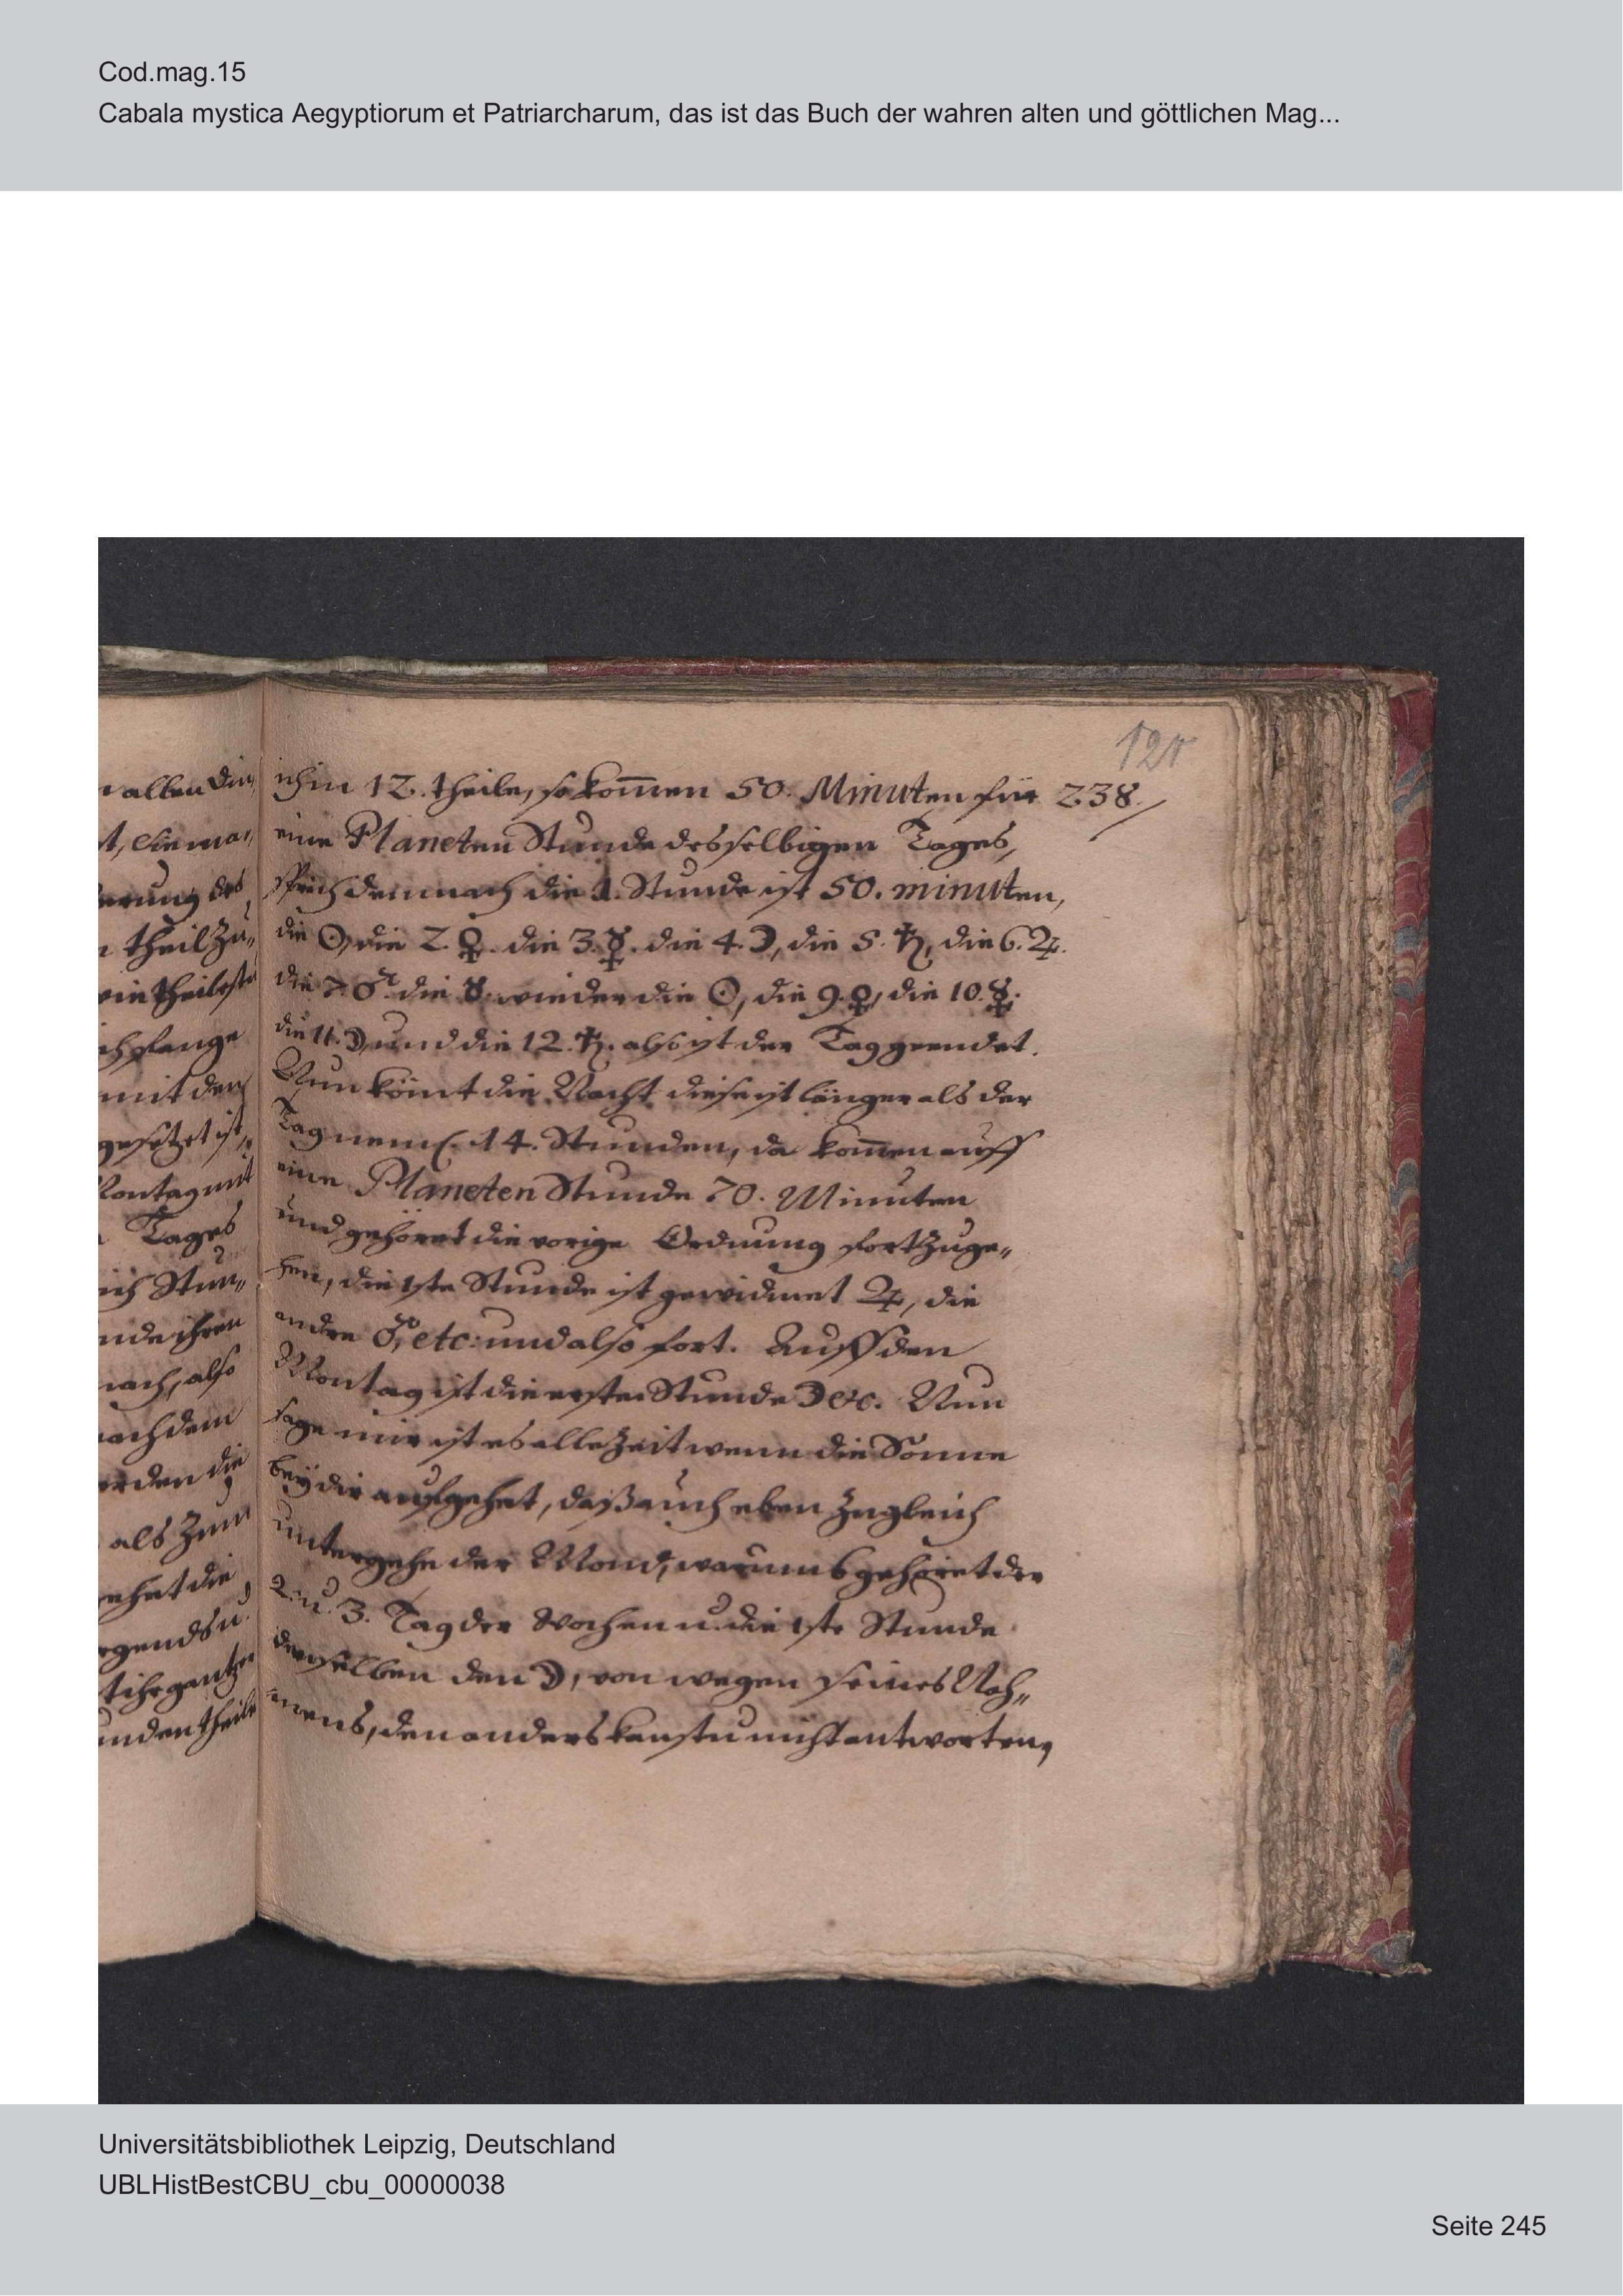 Cod.mag.15
Cabala mystica Aegyptiorum et Patriarcharum, das ist das Buch der wahren alten und göttlichen Mag...
121
238.
allen din,
theil zu„
mit den
gesetzet ist,
Montag mit
Tages
ich Stun„
nach, also
nachdem
als zum
gehet die
unden theile
ich in 12. theile, so kom̄en 50. Minuten für
eine Planeten Stunde desselbigen Tages,
sprich demnach die 1. Stunde ist 50. minuten,
die ☉, die 2. ♀. die 3. ☿. die 4. ☽, die 5. ♄, die 6. ♃.
die 7. ♂. die 8. wieder die ☉, die 9. ♀, die 10. ☿.
die 11. ☽, und die 12. ♄. also ist der Tag geendet.
Nun kömt die Nacht diese ist länger als der
Tag neml. 14. Stunden, da kom̄en auff
eine Planeten Stunde 70. Minuten
und gehöret die vorige Ordnung fortzuge„
hen, die 1ste Stunde ist gewidmet ♃, die
andre ♂, etc: und also fort. Auff den
Montag ist die erste Stunde ☽ etc. Nun
sage mir ist es allezeit wenn die Sonne
beÿ dir aufgehet, daß auch eben zugleich
untergehe der Mond, warumb gehöret der
2. u. 3. Tag der Wochen u. die 1ste Stunde
derselben den ☽, von wegen seines Nah„
mens, den anders kanstu nicht antworten,
Universitätsbibliothek Leipzig, Deutschland
UBLHistBestCBU_cbu_00000038
Seite 245